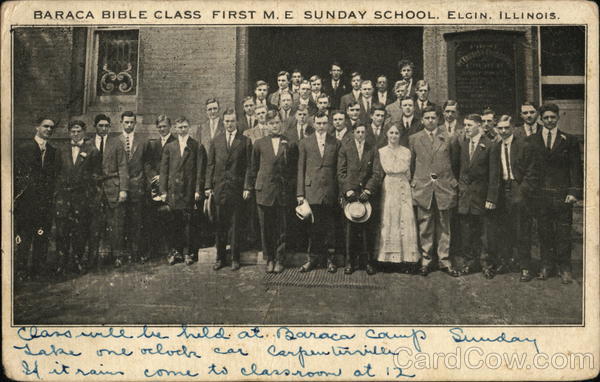 BARACA BIBLE CLASS FIRST M. E SUNDAY SCHOOL. ELGIN, ILLINOIS.
Class will be held at Baraca Camp Sunday
Take one oclock car Carpentersville
If it rains come to classroom at 12
CardCow.com